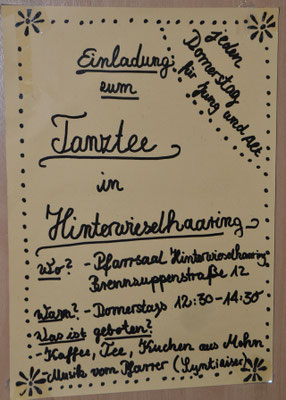 Einladung
zum
Tanztee
in
Hinterwieselhaaring
jeden
Donnerstag
für Jung und Alt
Wo? - Pfarrsaal "Hinterwieselhaaring"
Brennsuppenstraße 12
Wann? - Donnerstags 12:30-14:30
Was ist geboten?
- Kaffee, Tee, Kuchen aus Mohn
- Musik vom Pfarrer